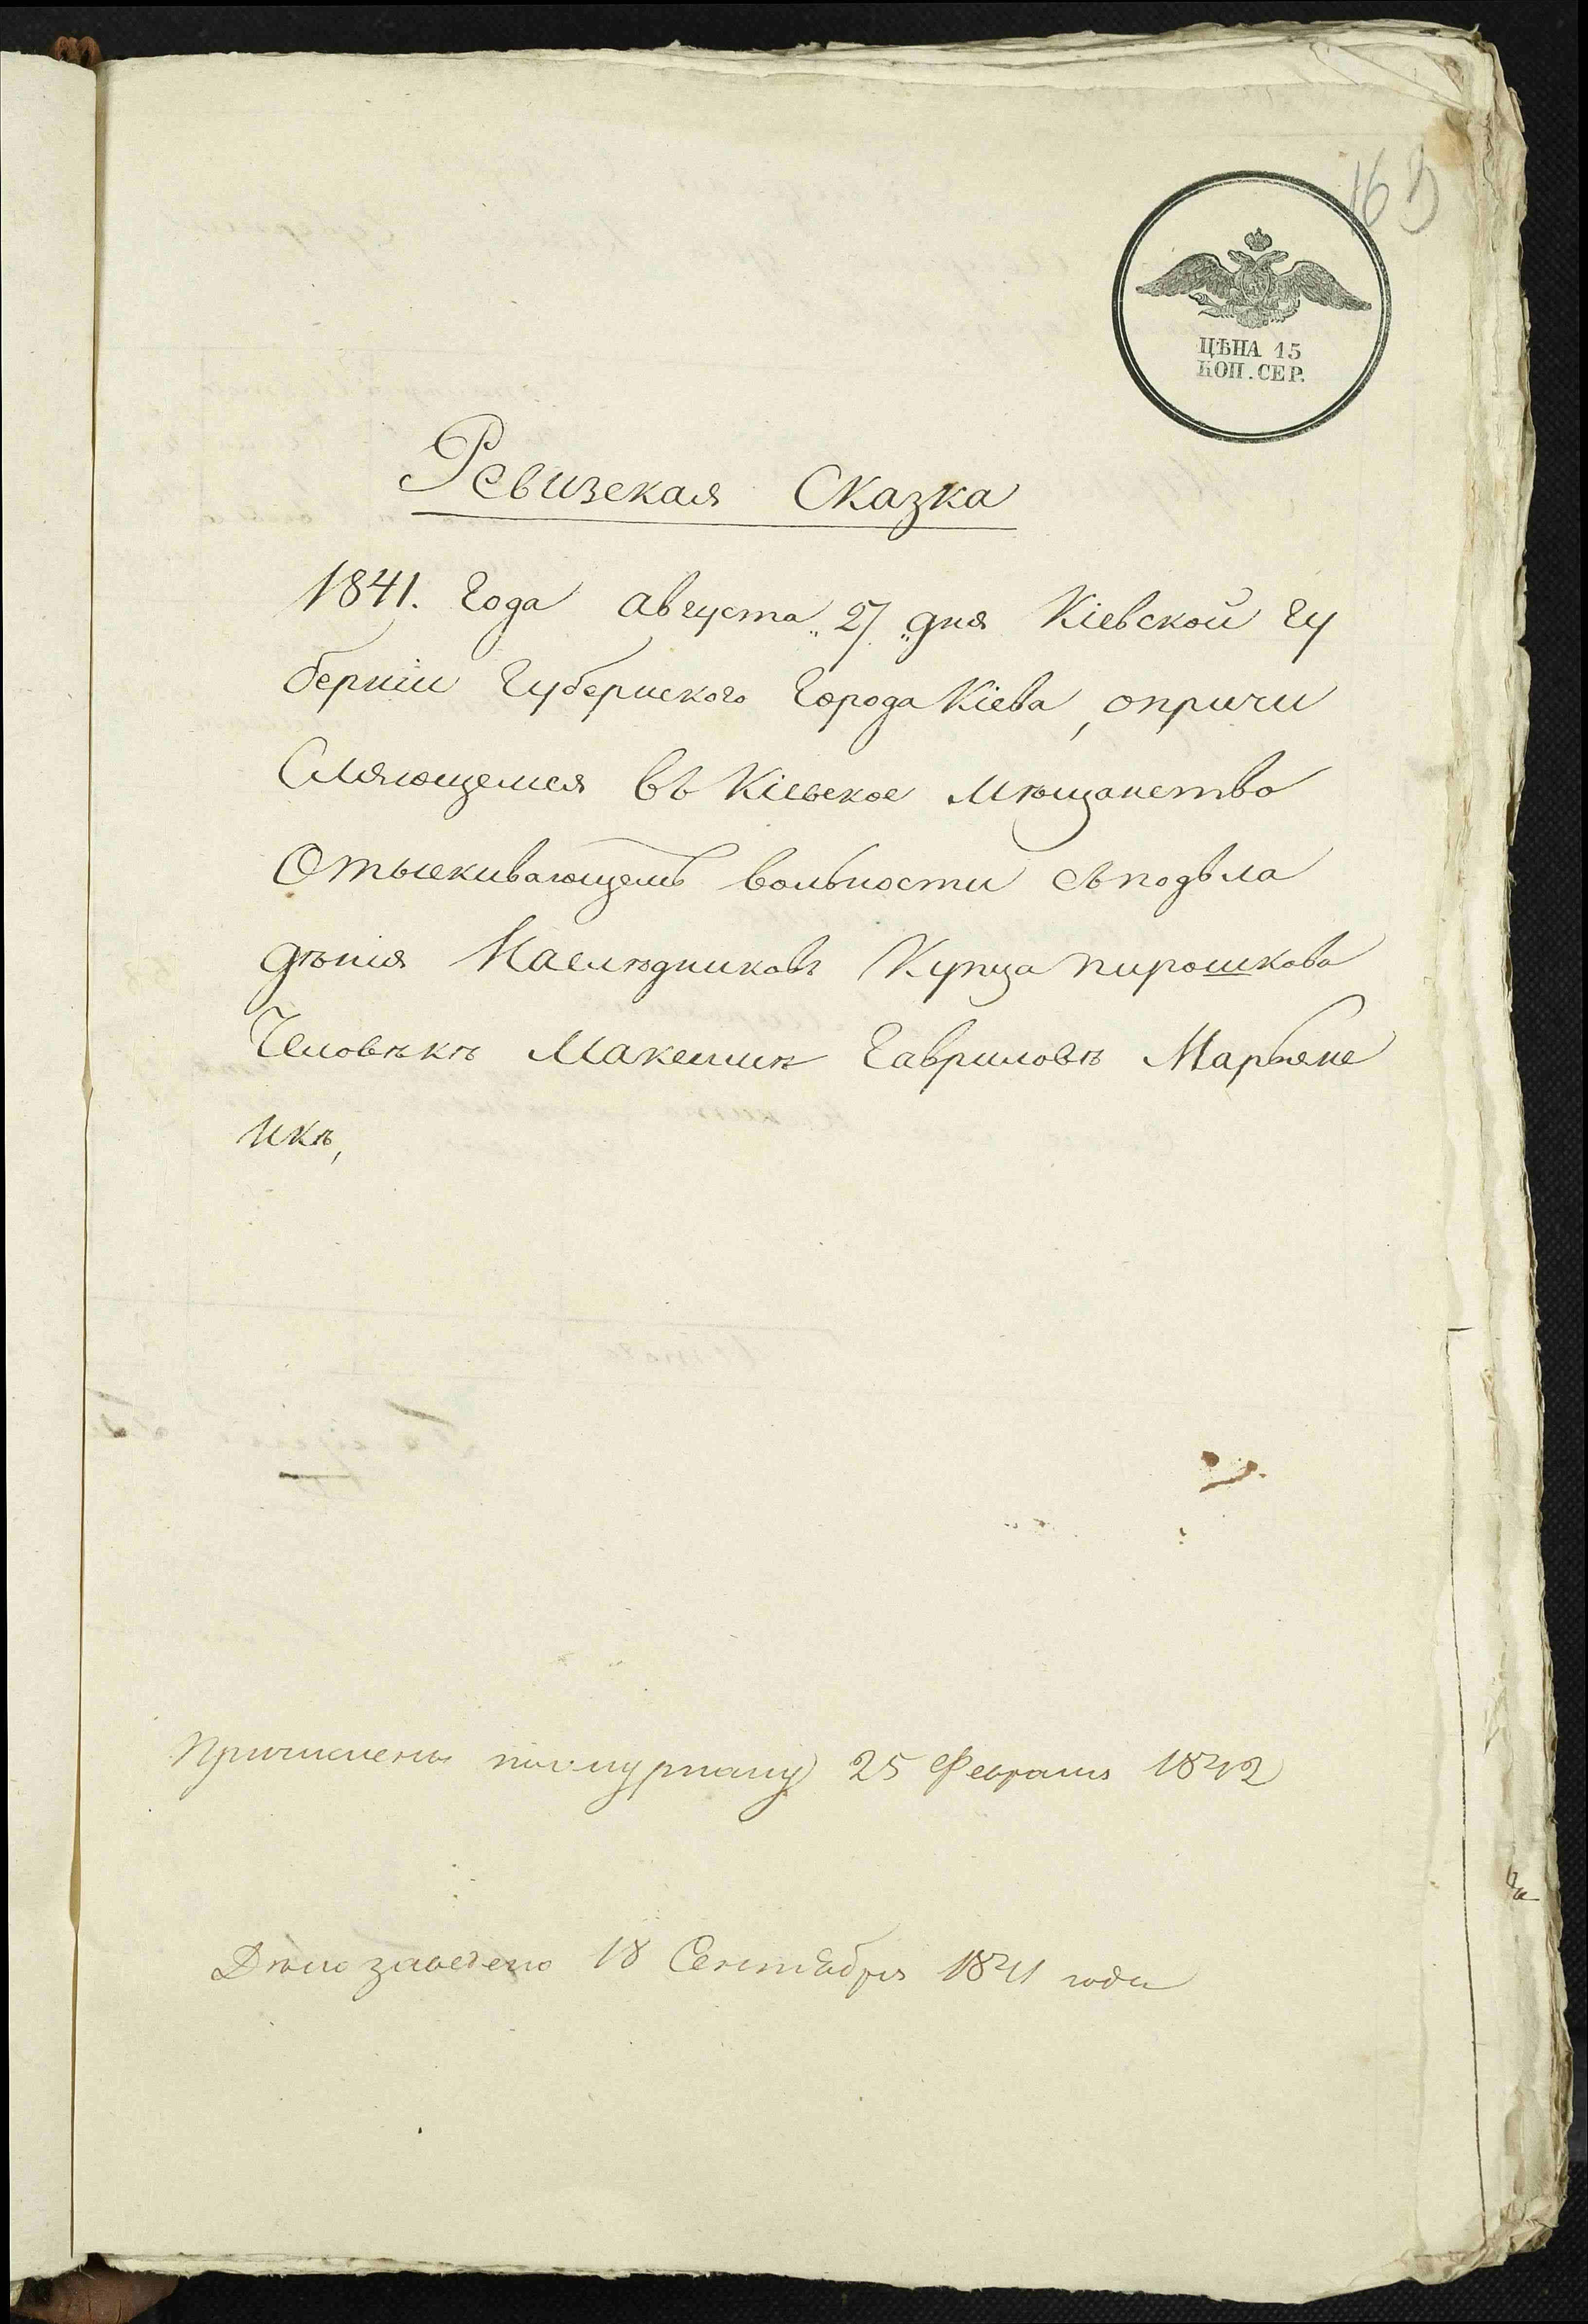 165
ЦѢНА 15
КОП. СЕР.
Ревизская Сказка
1841. Года августа „27„ дня Кіевской гу
берніи Губернского Города Кіева, опричи
сляющемся въ Кіевское мѣщанство
Отыскивающемъ вольности съ подвла
дѣнія Наслѣдниковъ Купца пирошкова
Человѣкѣ Максимѣ Гавриловѣ Марьяне
нкѣ,
Причислены по журналу 25 Февраля 1842
Дѣло заведено 18 Сентября 1841 года